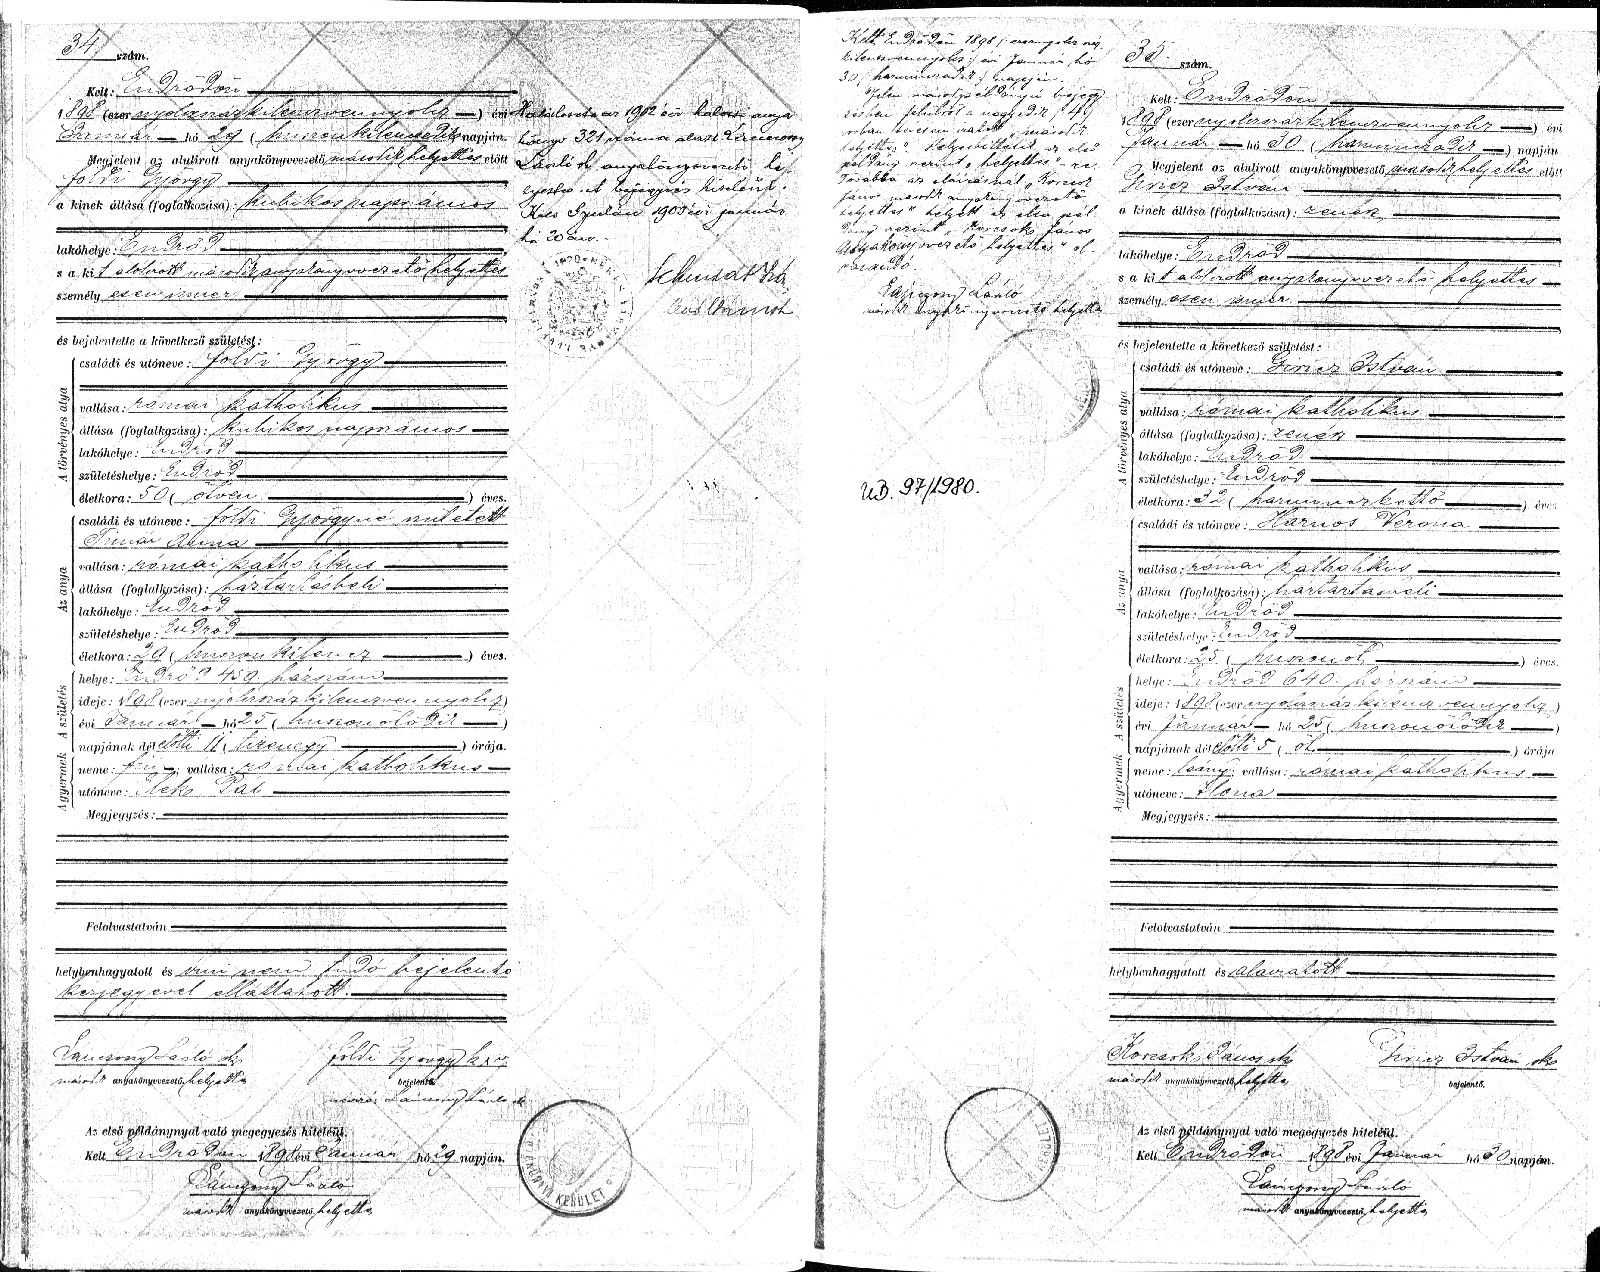 34 szám.
Kelt: Endrődön
1898 (ezernyolczszázkilenczvennyolcz) évi
Január hó 29 (huszonkilenczedik) napján.
Megjelent az alulirott anyakönyvvezető második helyettes előtt
Földi György
a kinek állása (foglalkozása): kubikos napszámos
lakóhelye: Endrőd
s a kit alulirott második anyakönyvvezető helyettes
személyesen ismer
és bejelentette a következő születést:
A törvényes atya
családi és utóneve: Földi György
vallása: római katholikus
állása (foglalkozása): kubikos napszámos
lakóhelye: Endrőd
születéshelye: Endrőd
életkora: 50 (ötven) éves.
Az anya
családi és utóneve: Földi Györgyné született
Timár Anna
vallása: római katholikus
állása (foglalkozása): háztartásbeli
lakóhelye: Endrőd
születéshelye: Endrőd
életkora: 29 (huszonkilencz) éves.
A születés
helye: Endrőd 459 házszám
ideje: 1898 (ezernyolczszázkilenczvennyolcz)
évi Január hó 25 (huszonötödik)
napjának délelőtti 11 (tizenegy) órája.
A gyermek
neme: fiu; vallása: római katholikus
utóneve: Pál
Megjegyzés:
Felolvastatván
helybenhagyatott és irni nem tudó bejelentő
kézjegyével elláttatott.
Lánczony László sk
második anyakönyvvezető helyettes
Földi György
bejelentő.
Lánczony László sk
Az első példánynyal való megegyezés hiteléül.
Kelt Endrődön 1898 évi Január hó 29 napján.
Lánczony László
második anyakönyvvezető helyettes
1902 évi halotti anya
könyv 331 száma alatt
László anyakönyvvezető
bejegyzés hiteléül.
1903 évi január
hó 20 án.
KERÜLET
Kelt Endrődön 1898 (ezernyolczszáz
kilenczvennyolcz) évi Január hó
30 (harminczadik) napján.
Jelen másodpéldányú bejegy
zésben felülről a negyedik /4/
sorban tévesen íratott "második
helyettes". Helyesbittetik az első
példány szerint "helyettes"-re.
Továbbá az aláírásnál "Korcsok
János második anyakönyvvezető
helyettes" helyett az első pél
dány szerint, "Korcsok János
anyakönyvvezető helyettes" ol
vasandó.
Lánczony László
második anyakönyvvezető helyettes
UB. 97/1980.
35. szám.
Kelt: Endrődön
1898 (ezernyolczszázkilenczvennyolcz) évi
Január hó 30 (harminczadik) napján
Megjelent az alulirott anyakönyvvezető második helyettes előtt
Gricz István
a kinek állása (foglalkozása): zenész
lakóhelye: Endrőd
s a kit alulirott anyakönyvvezető helyettes
személyesen ismer
és bejelentette a következő születést:
A törvényes atya
családi és utóneve: Gricz István
vallása: római katholikus
állása (foglalkozása): zenész
lakóhelye: Endrőd
születéshelye: Endrőd
életkora: 32 (harminczkettő) éves
Az anya
családi és utóneve: Harnos Verona
vallása: római katholikus
állása (foglalkozása): háztartásbeli
lakóhelye: Endrőd
születéshelye: Endrőd
életkora: 25 (huszonöt) éves.
A születés
helye: Endrőd 640. házszám
ideje: 1898 (ezernyolczszázkilenczvennyolcz)
évi Január hó 25 (huszonötödik)
napjának délelőtti 5 (öt) órája
A gyermek
neme: leány; vallása: római katholikus
utóneve: Ilona
Megjegyzés:
Felolvastatván
helybenhagyatott és aláíratott
Korcsok János sk
második anyakönyvvezető helyettes
Gricz István sk
bejelentő.
Az első példánynyal való megegyezés hiteléül.
Kelt Endrődön 1898 évi Január hó 30 napján.
Lánczony László
második anyakönyvvezető helyettes